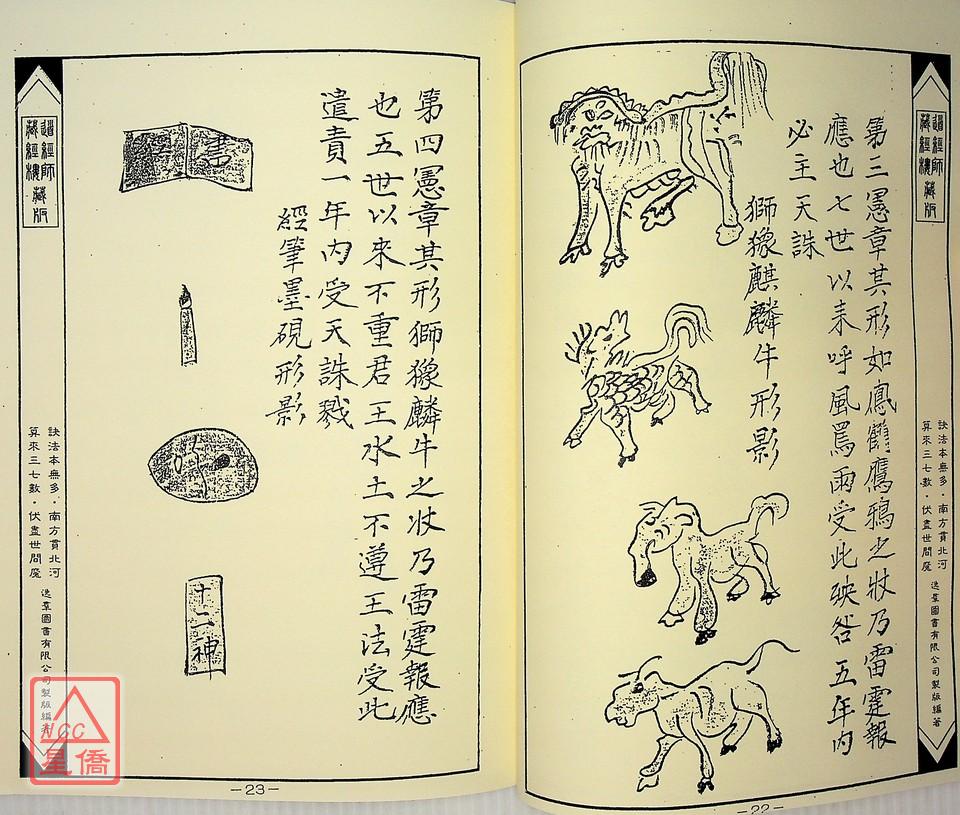 第三憲章其形如鳳鶴鷹鴉之狀乃雷霆報
應也七世以來呼風罵雨受此殃咎五年內
必主天誅
獅獴麒麟牛形影
道經師
藏經樓
藏版
訣法本無多・南方貫北河
算來三七數・伏盡世間魔
逸羣圖書有限公司製版編著
—22—
第四憲章其形獅獴麟牛之狀乃雷霆報應
也五世以來不重君王水土不遵王法受此
遣責一年內受天誅戮
經筆墨硯形影
書
十二神
道經師
藏經樓
藏版
訣法本無多・南方貫北河
算來三七數・伏盡世間魔
逸羣圖書有限公司製版編著
—23—
NCC
星僑